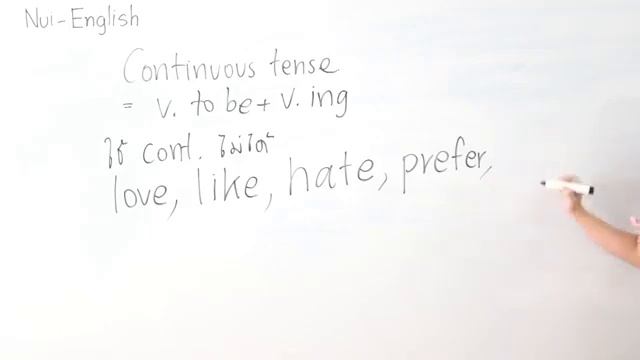 Nui-English
Continuous tense
= v. to be + v. ing
ใช้ cont. ไม่ได้
love, like, hate, prefer,